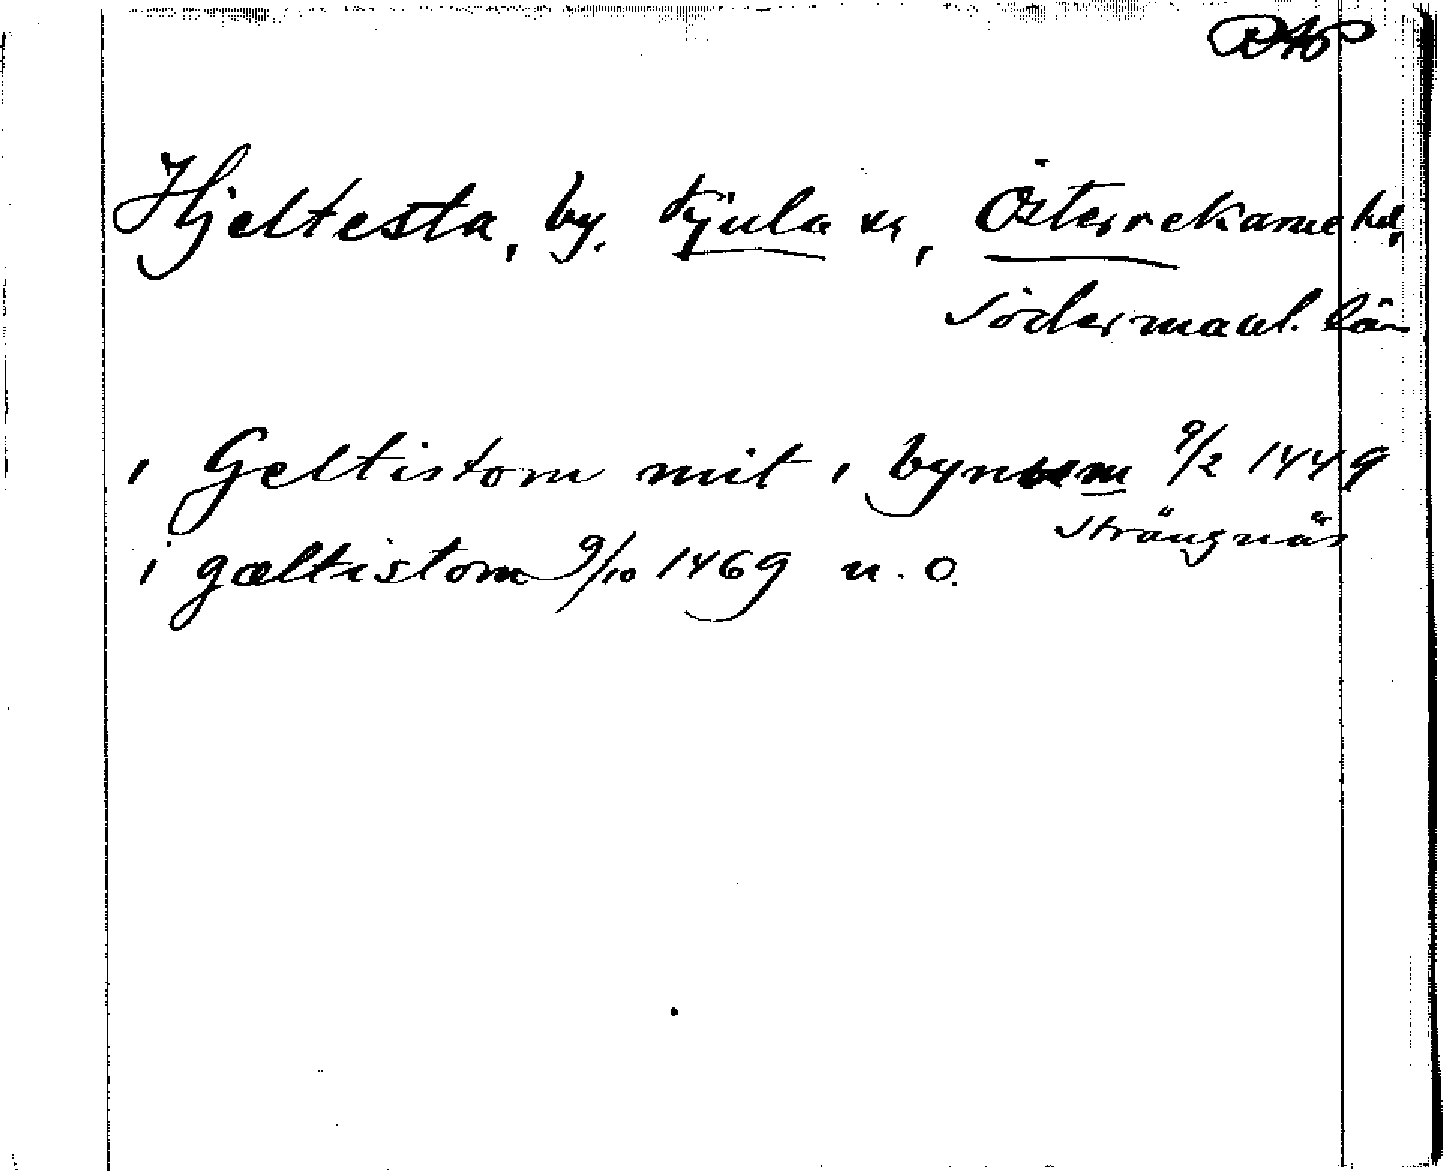 Hjeltesta, by, Kjula sn, Österrekarne hd,
Södermanl. län
i Geltistom mit i bynom 9/2 1449
Strängnäs
i gæltistom 9/10 1469 u. O.